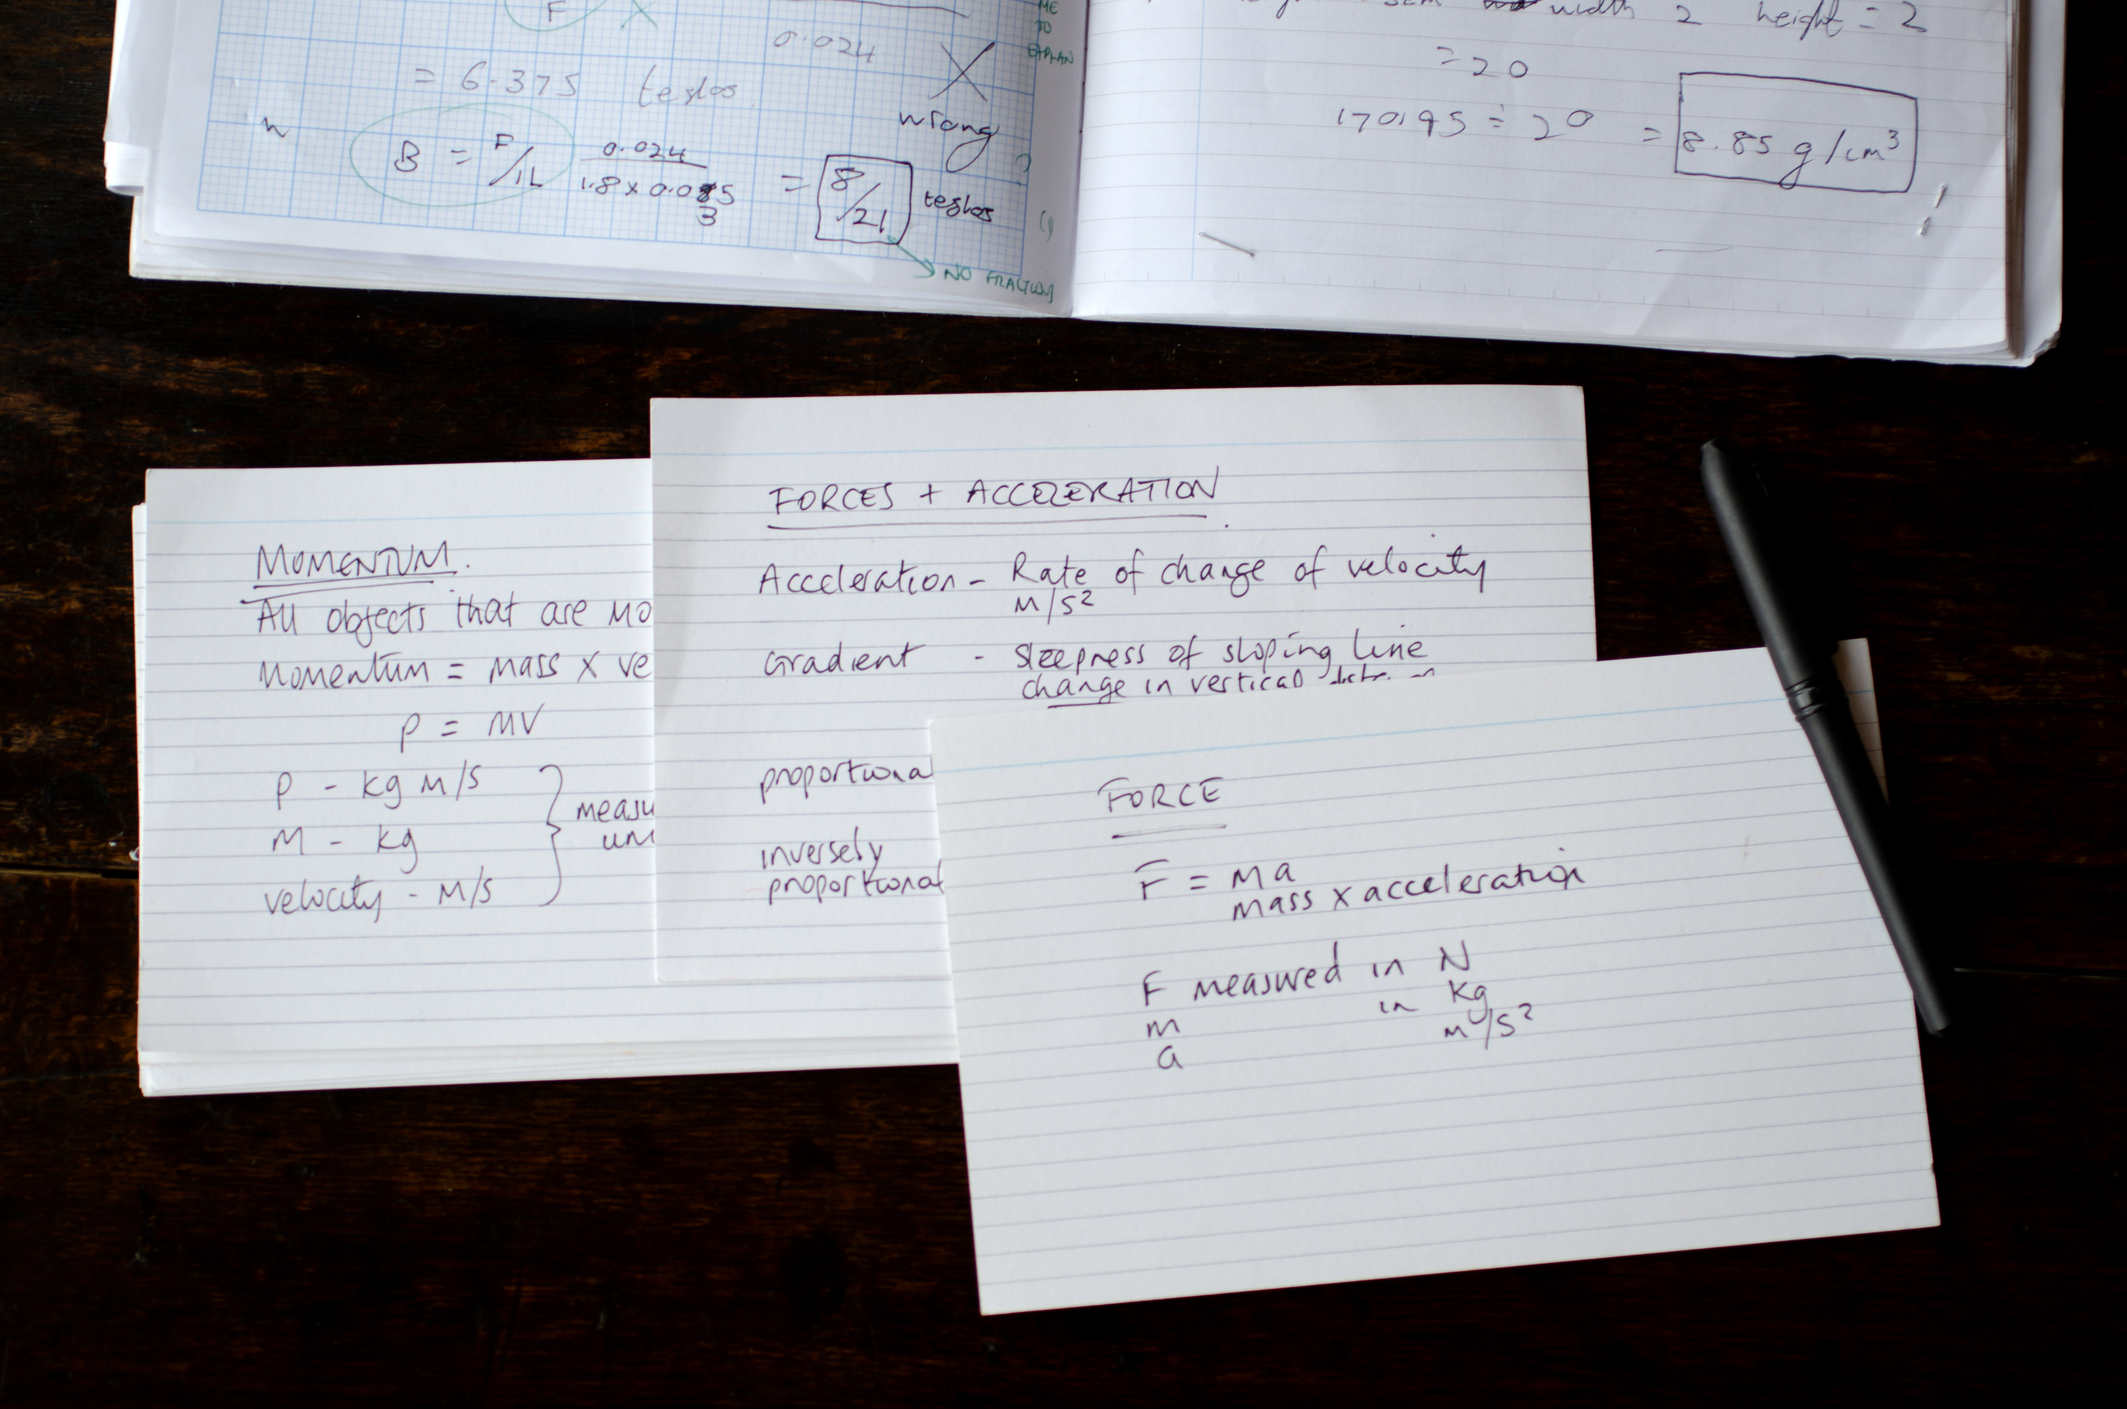 F
ME
TO
EXPLAN
0.024
= 6.375 teslas
wrong
B = F/IL 0.024 / 1.8 x 0.035 = 8/21 teslas
3
NO FRACTIONS
width 2 height = 2
= 20
170.95 ÷ 20 = 8.85 g/cm³
MOMENTUM.
All objects that are MO
Momentum = mass x ve
P = MV
P - kg M/S
M - kg
velocity - M/S
measu
uni
FORCES + ACCELERATION
Acceleration - Rate of change of velocity
M/S²
Gradient - steepness of sloping line
change in vertical
proportional
inversely
proportional
FORCE
F = Ma
Mass x acceleration
F measured in N
m in kg
a m/s²